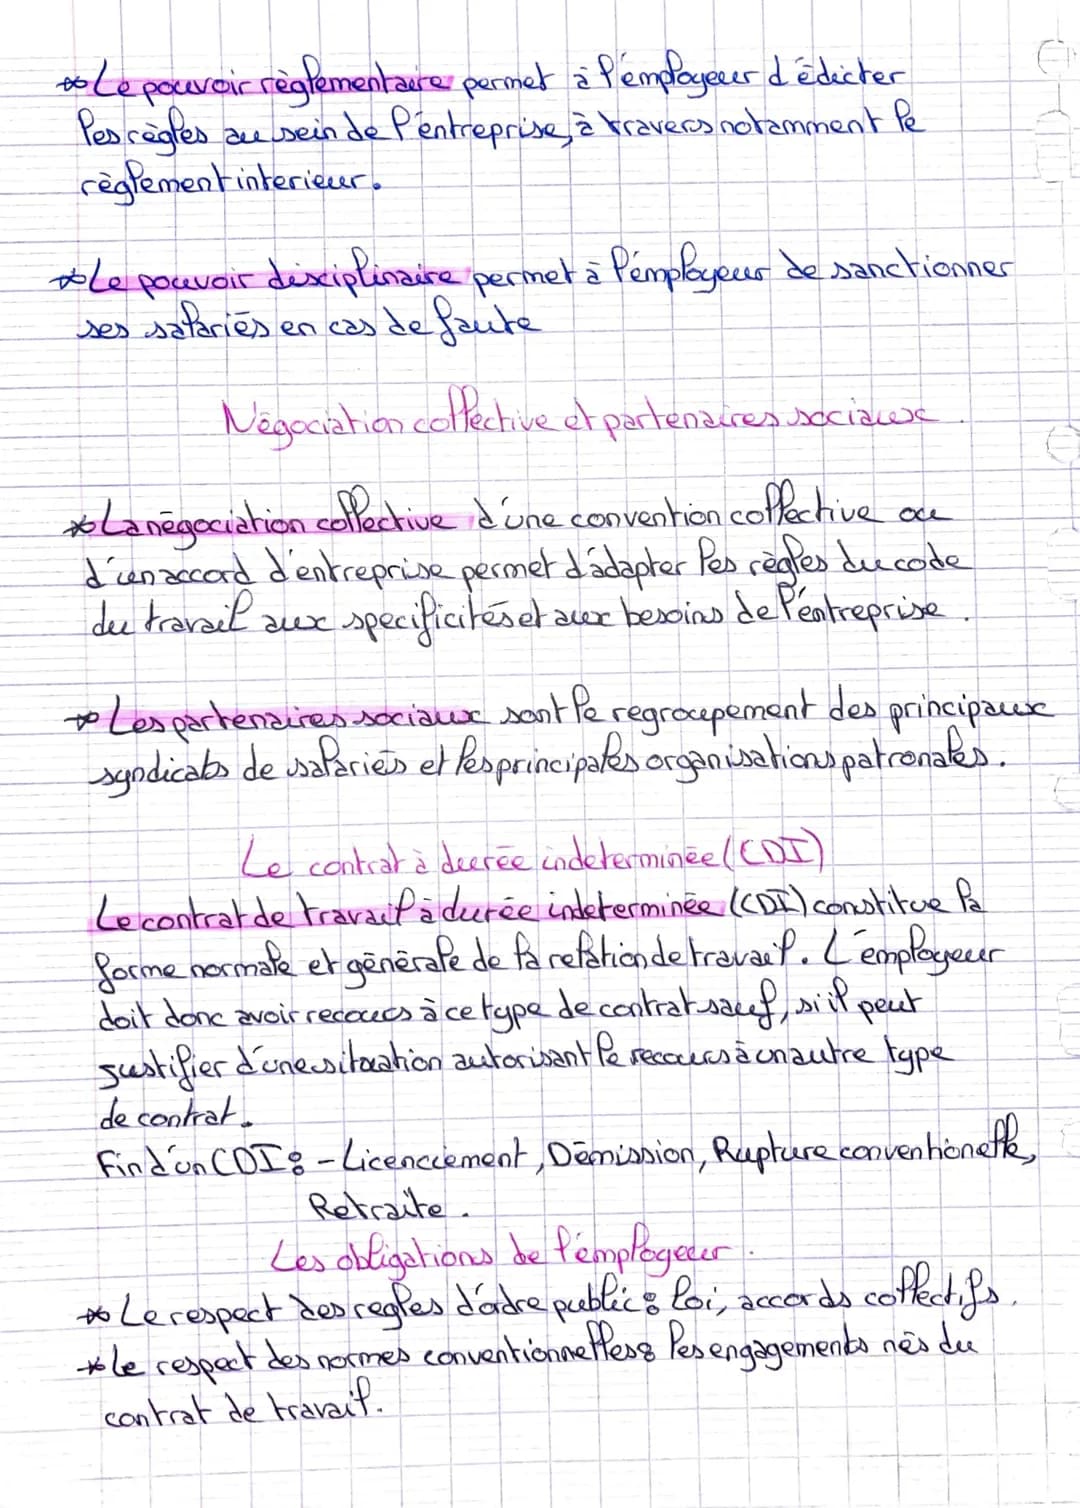 * Le pouvoir règlementaire permet à l'employeur d'édicter
les règles au sein de l'entreprise, à travers notamment le
règlement interieur.
* Le pouvoir disciplinaire permet à l'employeur de sanctionner
ses salariés en cas de faute
Négociation collective et partenaires sociaux.
* La négociation collective d'une convention collective ou
d'un accord d'entreprise permet d'adapter les règles du code
du travail aux specificités et aux besoins de l'entreprise.
* Les partenaires sociaux sont le regroupement des principaux
syndicats de salariés et les principales organisations patronales.
Le contrat à durée indeterminée (CDI)
Le contrat de travail à durée indeterminée (CDI) constitue la
forme normale et générale de la relation de travail. L'employeur
doit donc avoir recours à ce type de contrat sauf, si il peut
justifier d'une situation autorisant le recours à un autre type
de contrat.
Fin d'un CDI : - Licenciement, Démission, Rupture conventionelle,
Retraite.
Les obligations de l'employeur.
* Le respect des regles d'ordre public : loi, accords collectifs.
* Le respect des normes conventionnelles : les engagements nés du
contrat de travail.